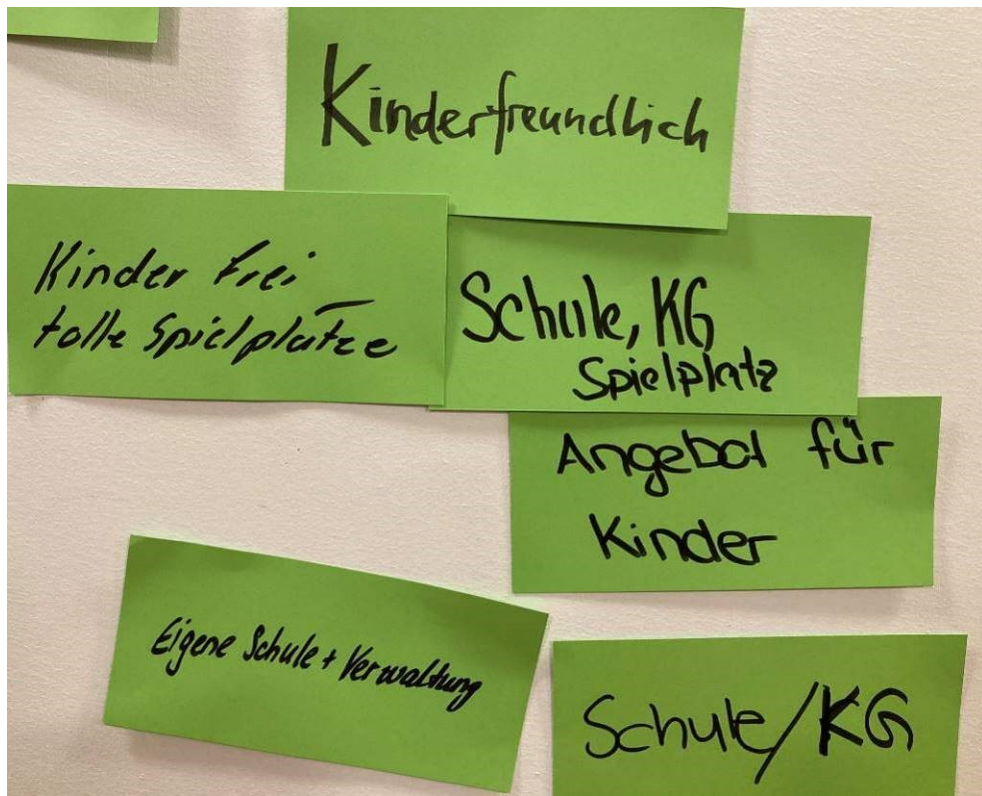 Kinderfreundlich
Kinder frei
tolle Spielplätze
Schule, KG
Spielplatz
Angebot für
Kinder
Eigene Schule + Verwaltung
Schule/KG